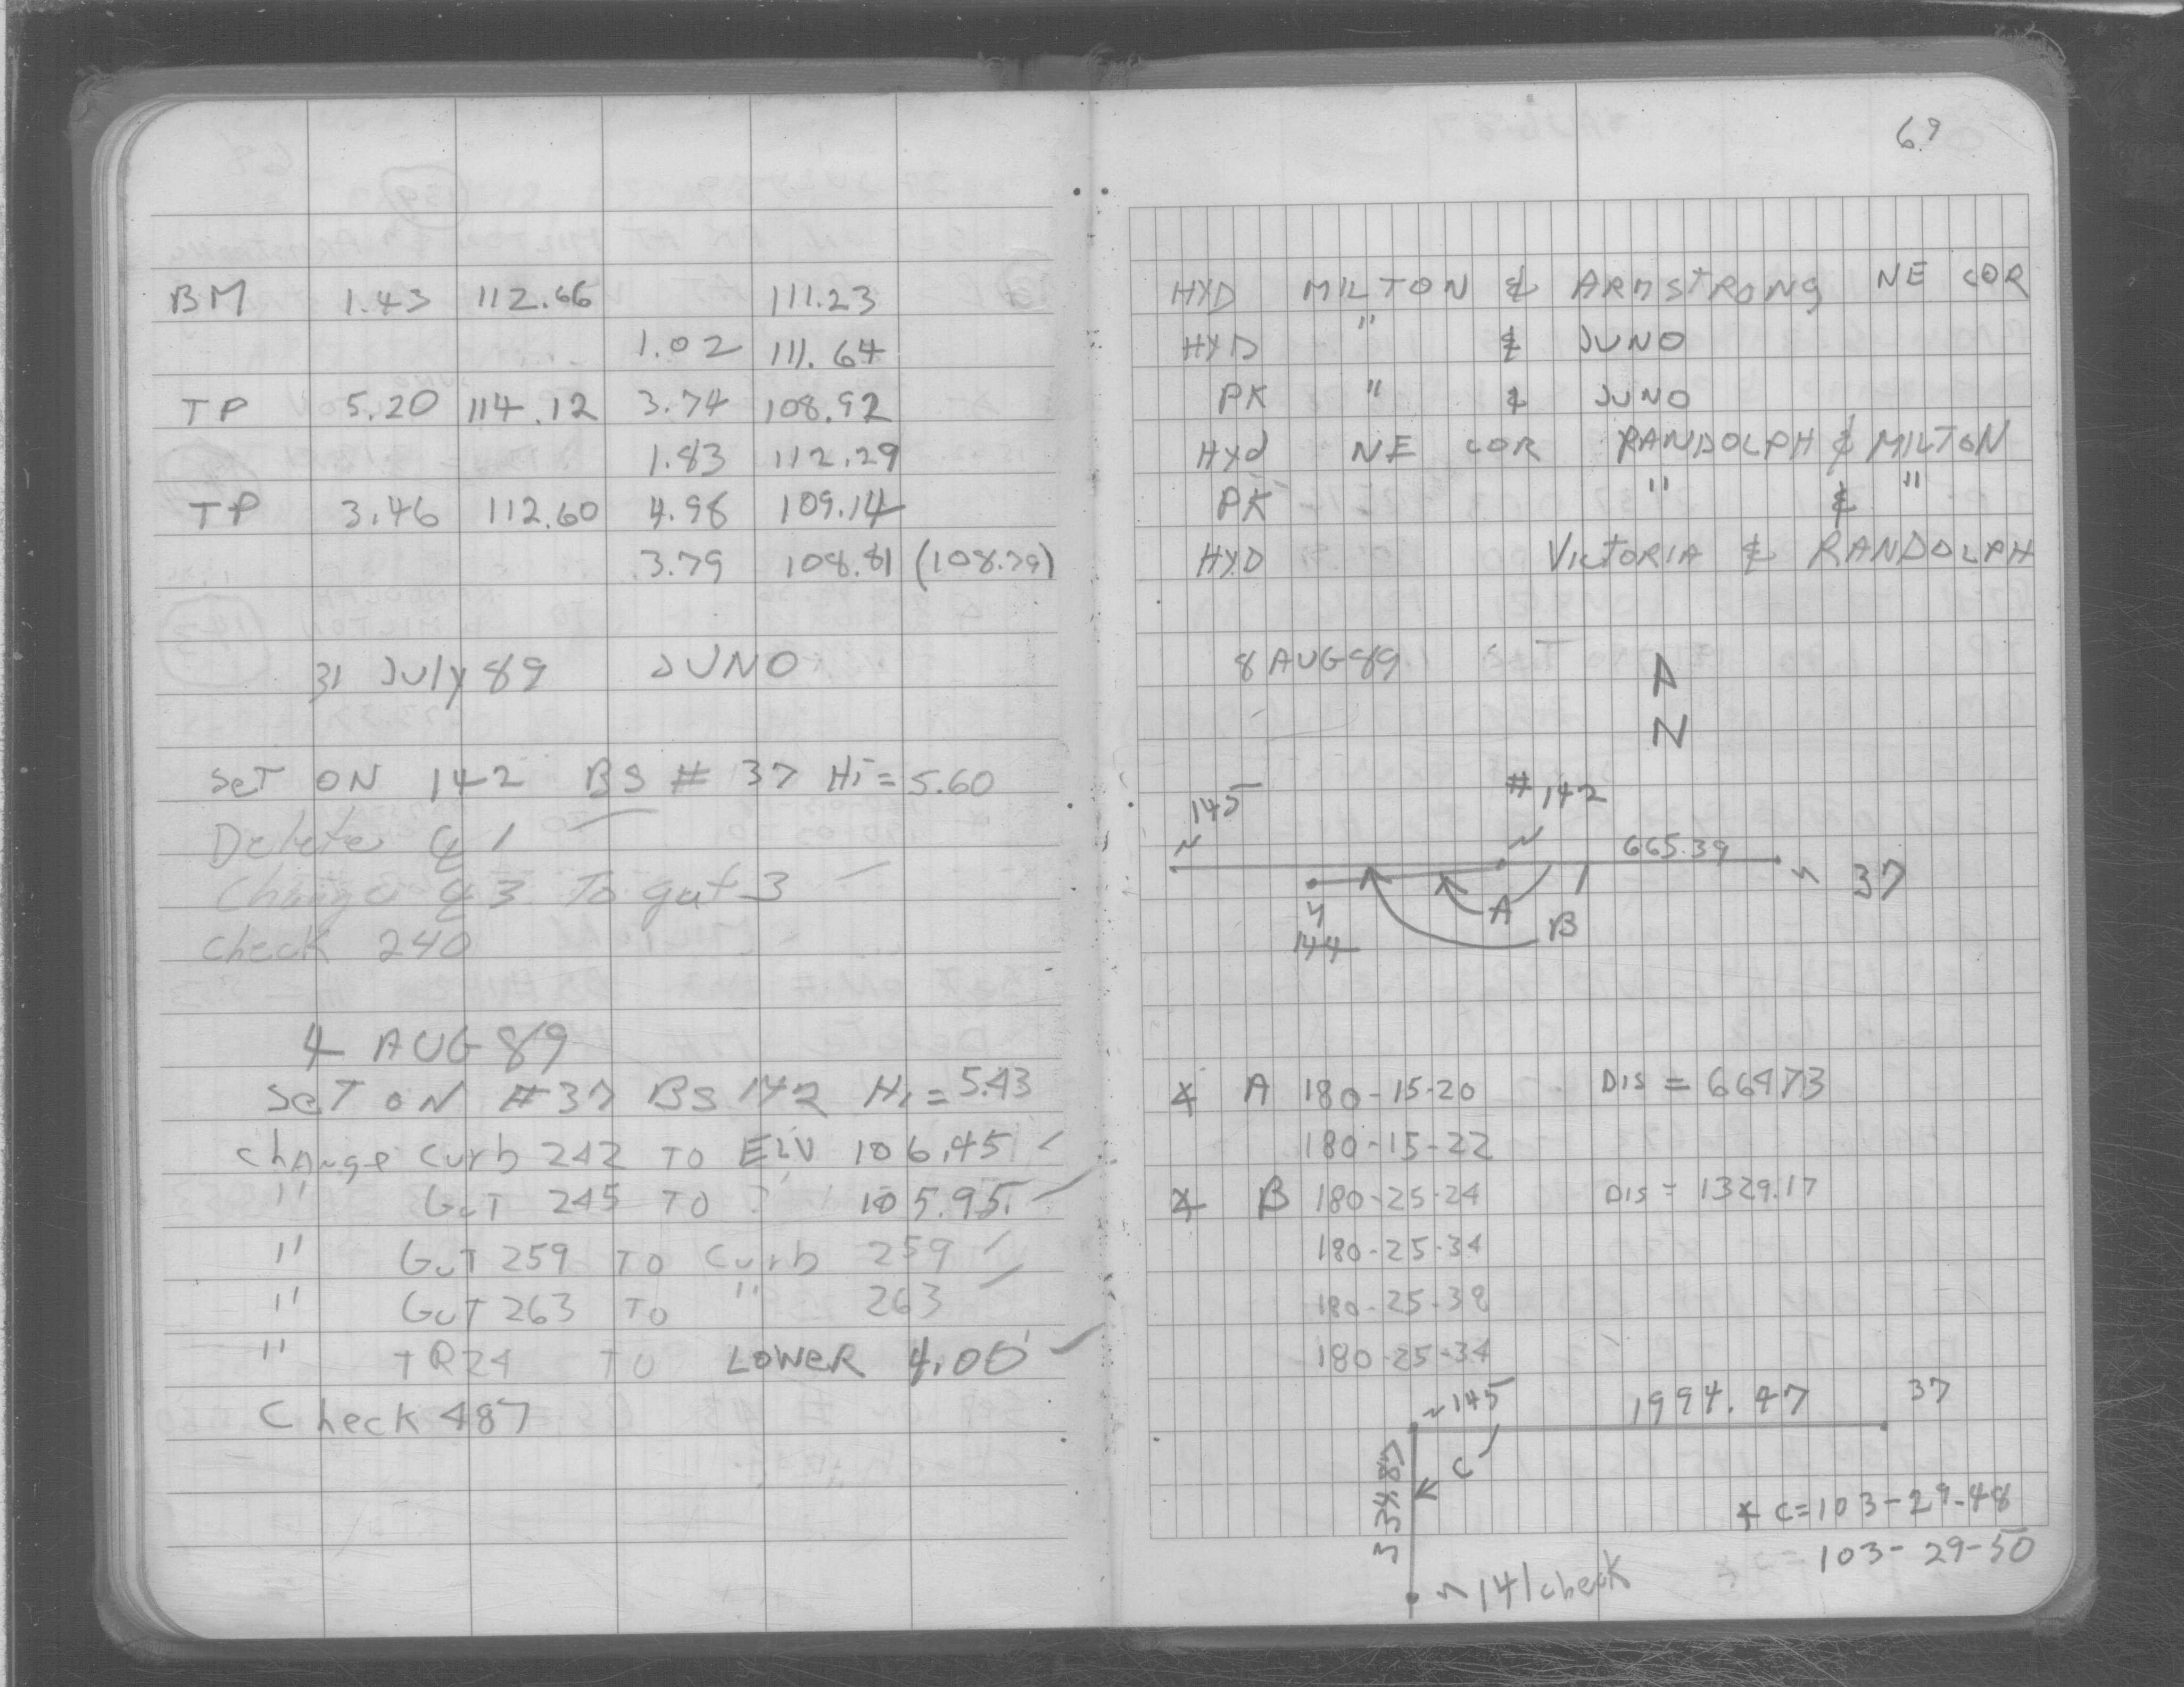 69
BM 1.43 112.66 111.23
1.02 111.64
TP 5.20 114.12 3.74 108.92
1.83 112.29
TP 3.46 112.60 4.98 109.14
3.79 108.81 (108.79)
31 July 89 JUNO
SeT ON 142 BS # 37 Hi = 5.60
Delete ℄ 1
Change ℄ 3 To gut 3
Check 240
4 AUG 89
SeT ON #37 BS 142 Hi = 5.43
Change Curb 242 TO ELV 106.45
" GuT 245 TO 105.95
" GuT 259 TO Curb 259
" GuT 263 TO " 263
" TR24 TO LOWER 4.00'
Check 487
HYD MILTON & ARMSTRONG NE COR
HYD " & JUNO
PK " & JUNO
HYd NE COR RANDOLPH & MILTON
PK " & "
HYD VICTORIA & RANDOLPH
8 AUG 89
N
145 #142
665.39
37
A
B
144
∡ A 180-15-20 DIS = 664.73
180-15-22
∡ B 180-25-24 DIS = 1329.17
180-25-34
180-25-38
180-25-34
145 1994.47 37
C
334.87
∡ C=103-29-48
∡ C = 103-29-50
141 check